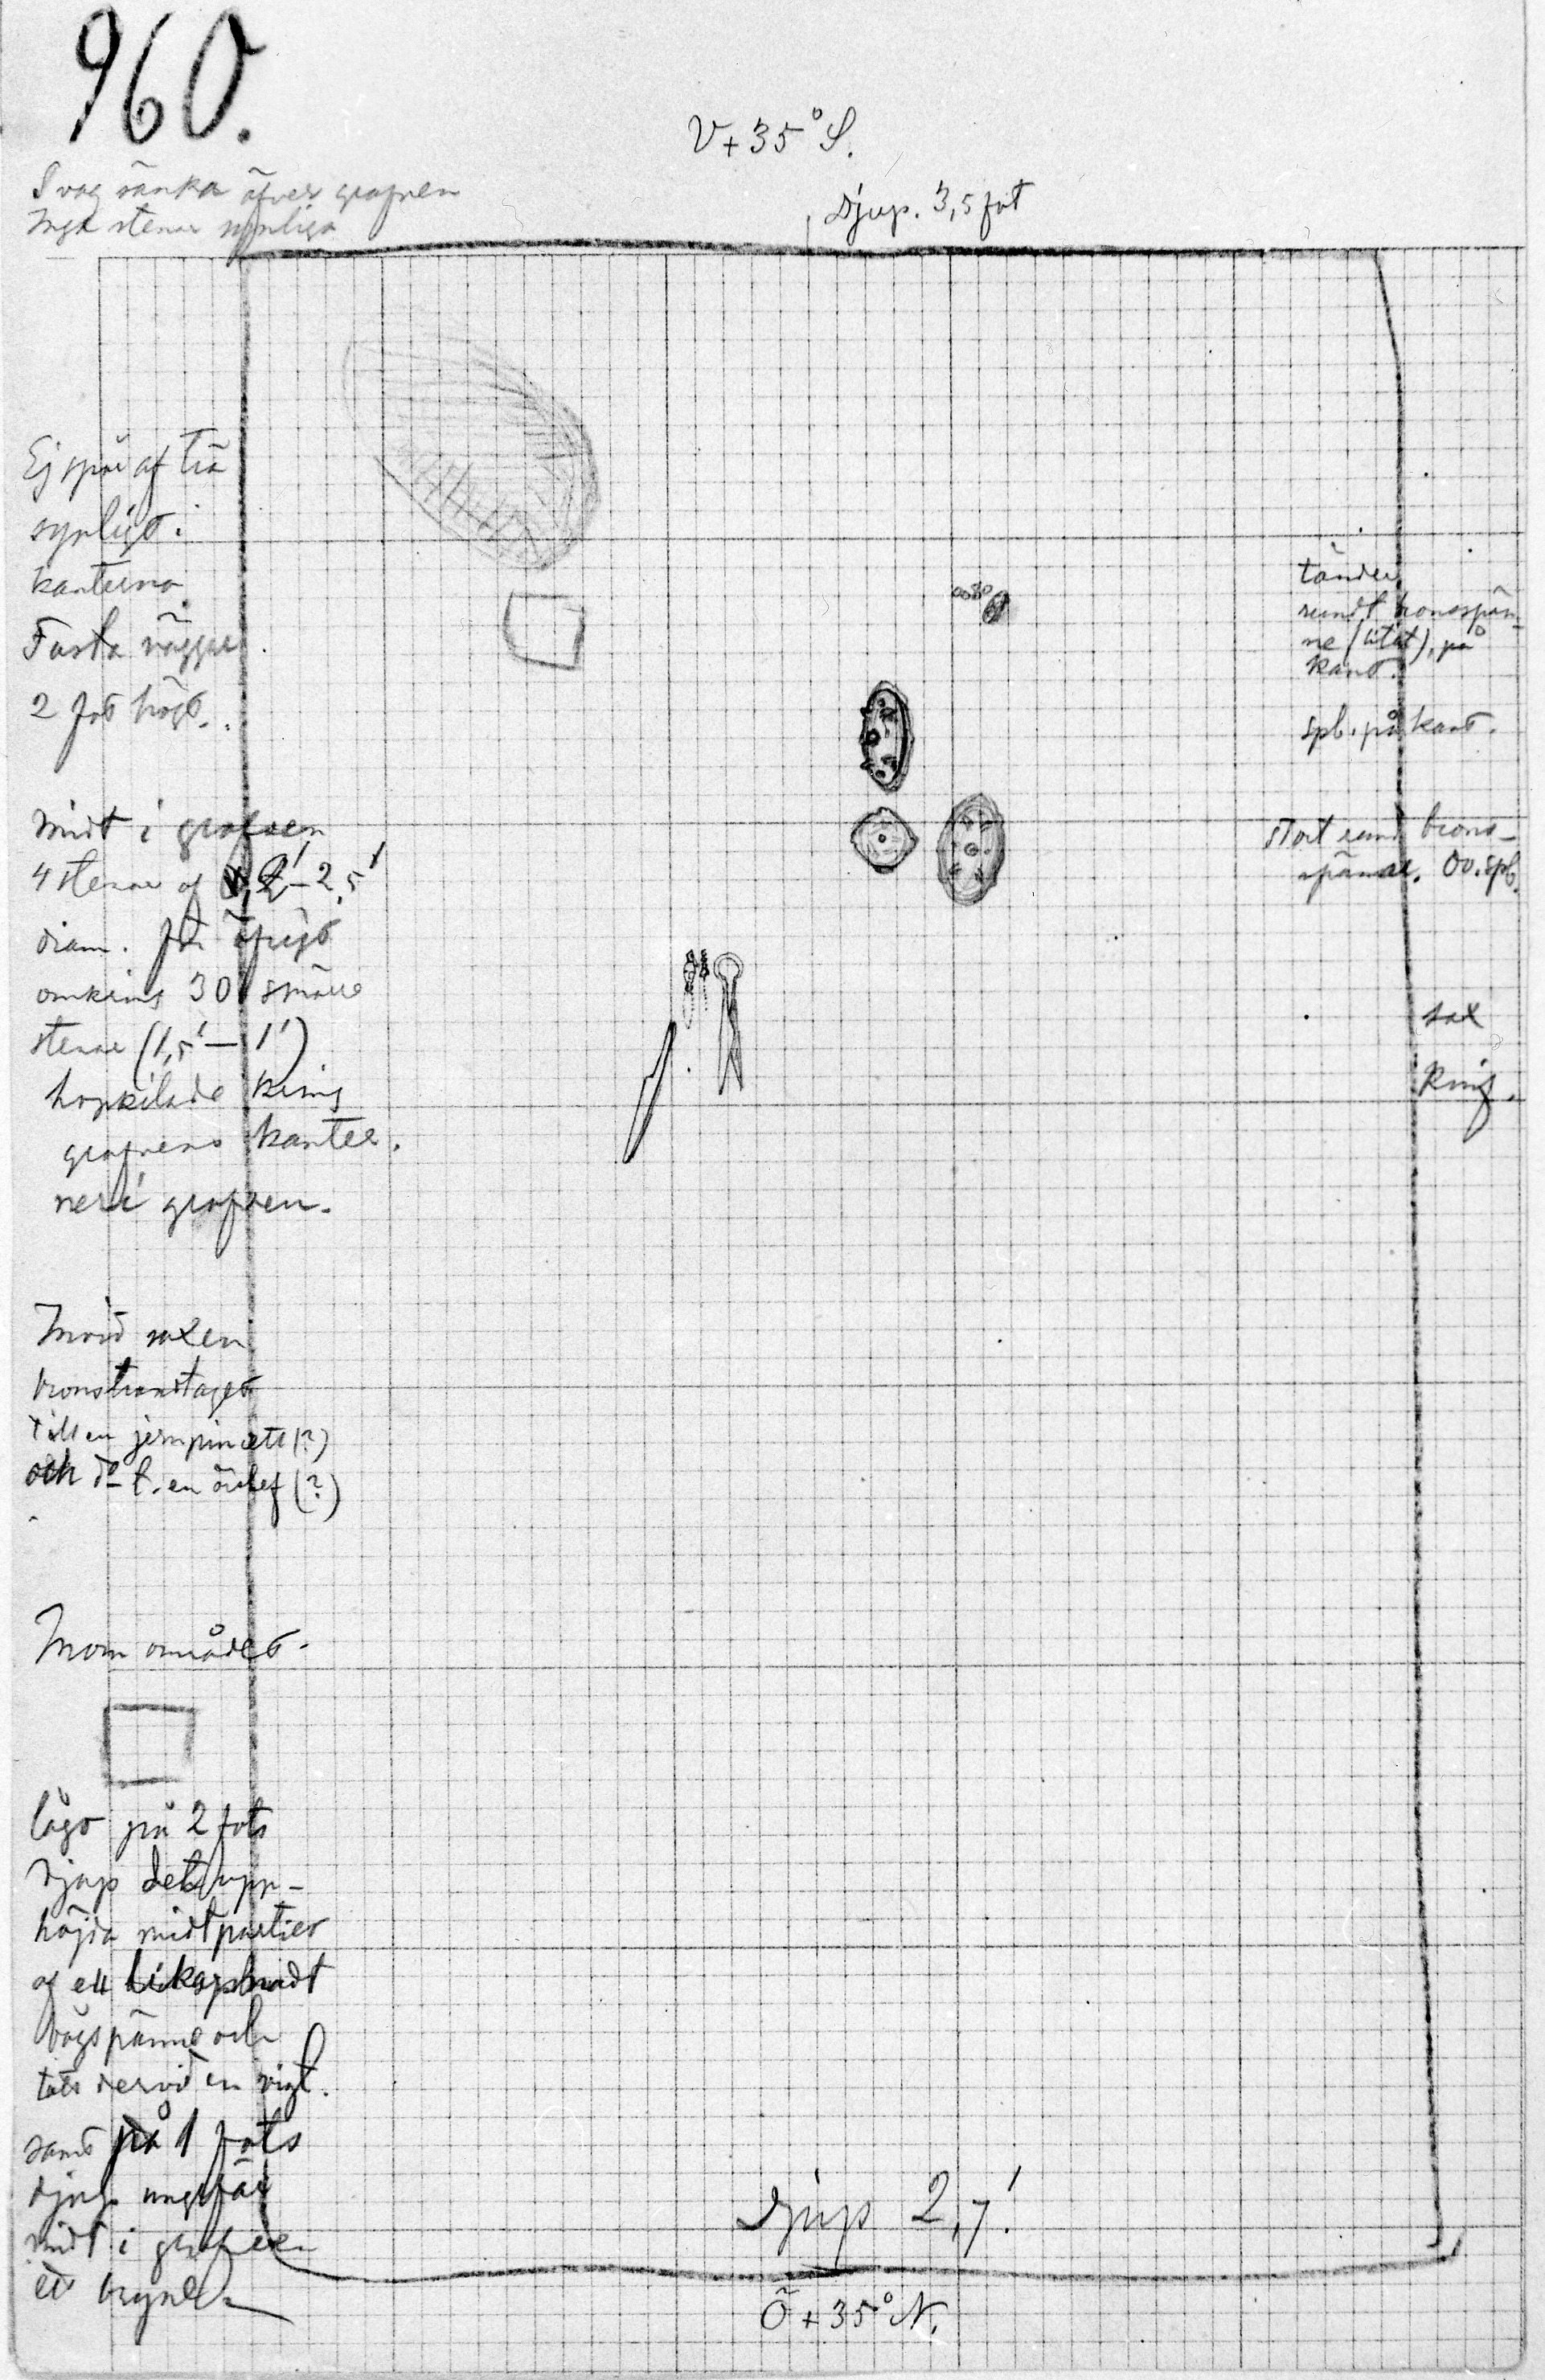 960.
V + 35° S.
Svag sänka öfver grafven
Inga stenar synliga
Djup. 3,5 fot
Ej spår af trä
synligt i
kanterna.
Fasta väggar
2 fot högt.
Midt i grafven
4 stenar af 2'–2,5'
diam. för öfrigt
omkring 30 smärre
stenar (1,5'–1')
hopkilade kring
grafvens kanter.
ner i grafven.
Invid saxen
bronsbandtaget
till en jernpincett (?)
och do t. en örslef (?)
Inom området
lågo på 2 fots
djup det upp-
höjda midtpartiet
af ett likarmadt
bågspänne och
tätt dervid en vigt.
samt på 1 fots
djup ungefär
midt i grafven
ett bryne.
tänder,
rundt bronsspän-
ne (litet), på
kant.
spb. på kant.
stort rundt brons-
spänne. Ov. spb.
sax
Ring.
Djup 2,7'.
Ö + 35° N.